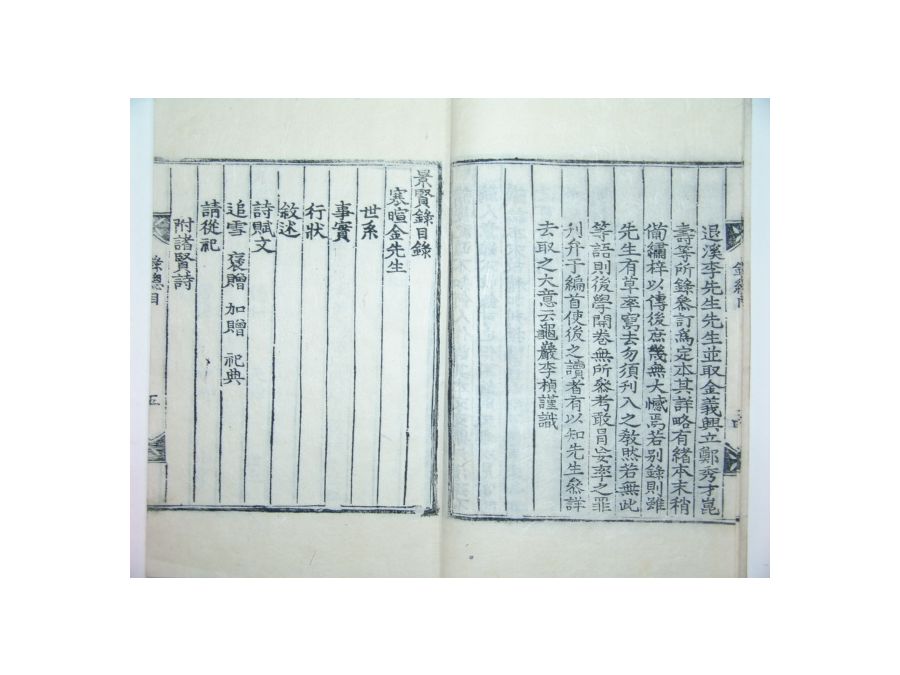 退溪李先生先生並取金義興立鄭秀才崑
壽等所錄參訂爲定本其詳略有緖本末稍
備繡梓以傳後庶幾無大憾焉若别錄則雖
先生有草率寫去勿須刊入之敎然若無此
等語則後學開卷無所參考敢冒妄率之罪
刋弁于編首使後之讀者有以知先生參詳
去取之大意云龜巖李楨謹識
景賢錄目錄
寒暄金先生
世系
事實
行狀
敘述
詩賦文
追雪 褒贈 加贈 祀典
請從祀
附諸賢詩
錄總目
五